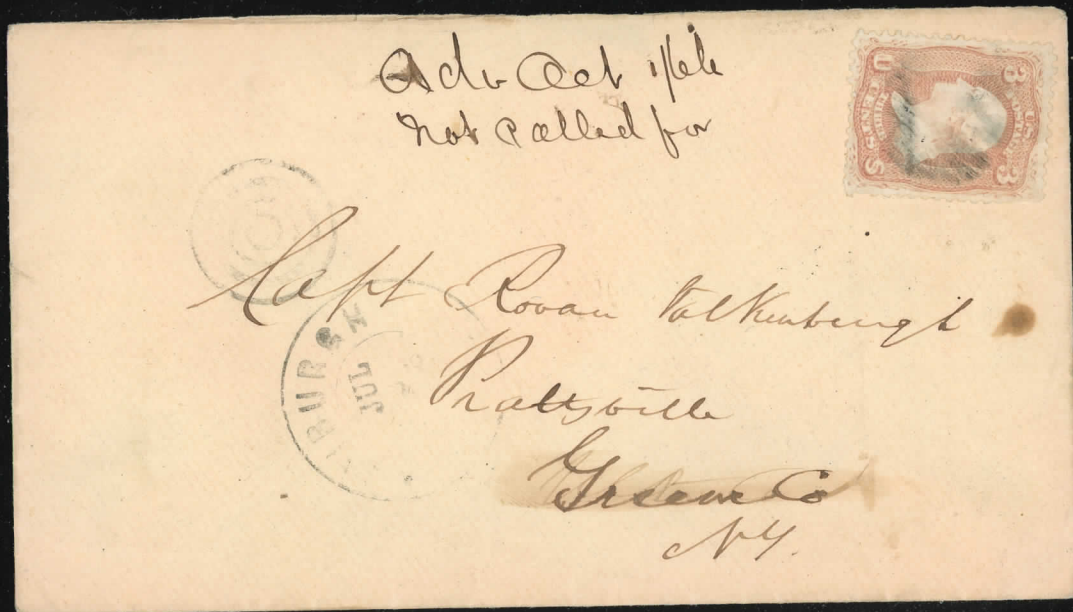 Adv Oct 1/66
Not Called for
U 3
U.S. POSTAGE
THREE CENTS
S 3
BURGH
JUL
Capt Rowan Valkenburgh
Prattsville
Greene Co
NY.